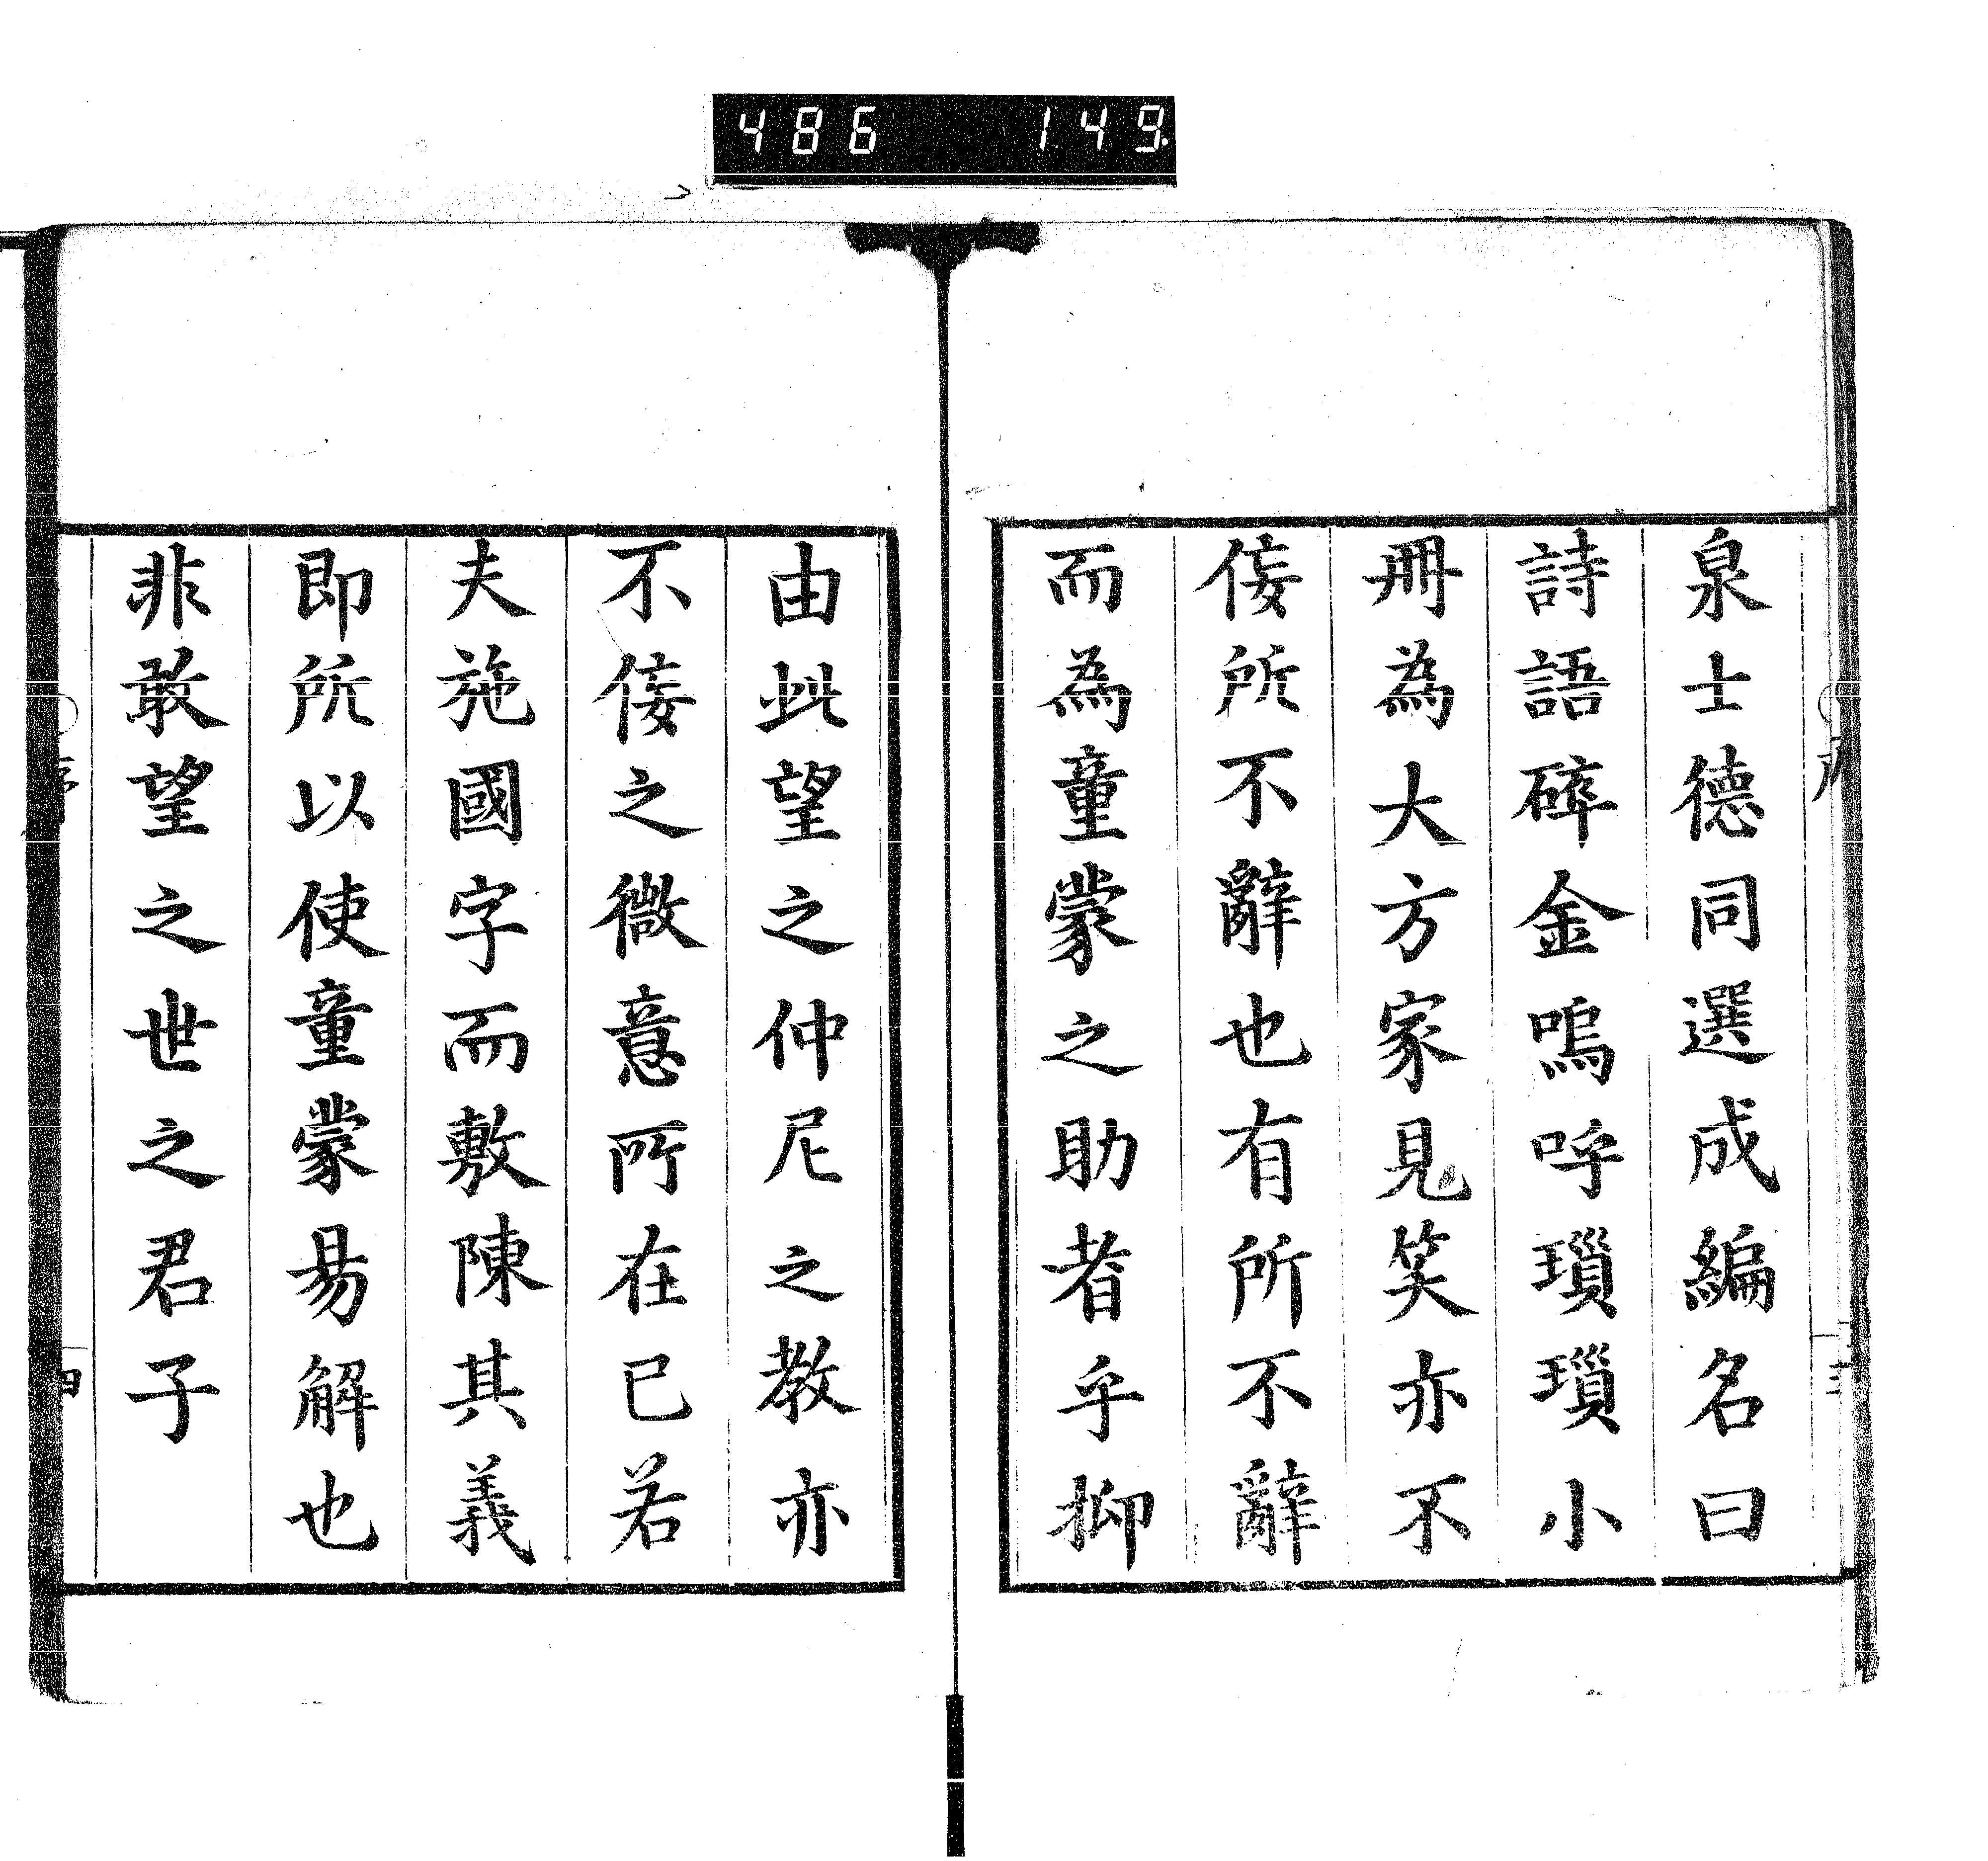 486 149.
泉士德同選成編名曰
詩語碎金嗚呼瑣瑣小
冊為大方家見笑亦不
佞所不辭也有所不辭
而為童蒙之助者乎抑
由此望之仲尼之教亦
不佞之微意所在已若
夫施國字而敷陳其義
即所以使童蒙易解也
非敢望之世之君子
序
四